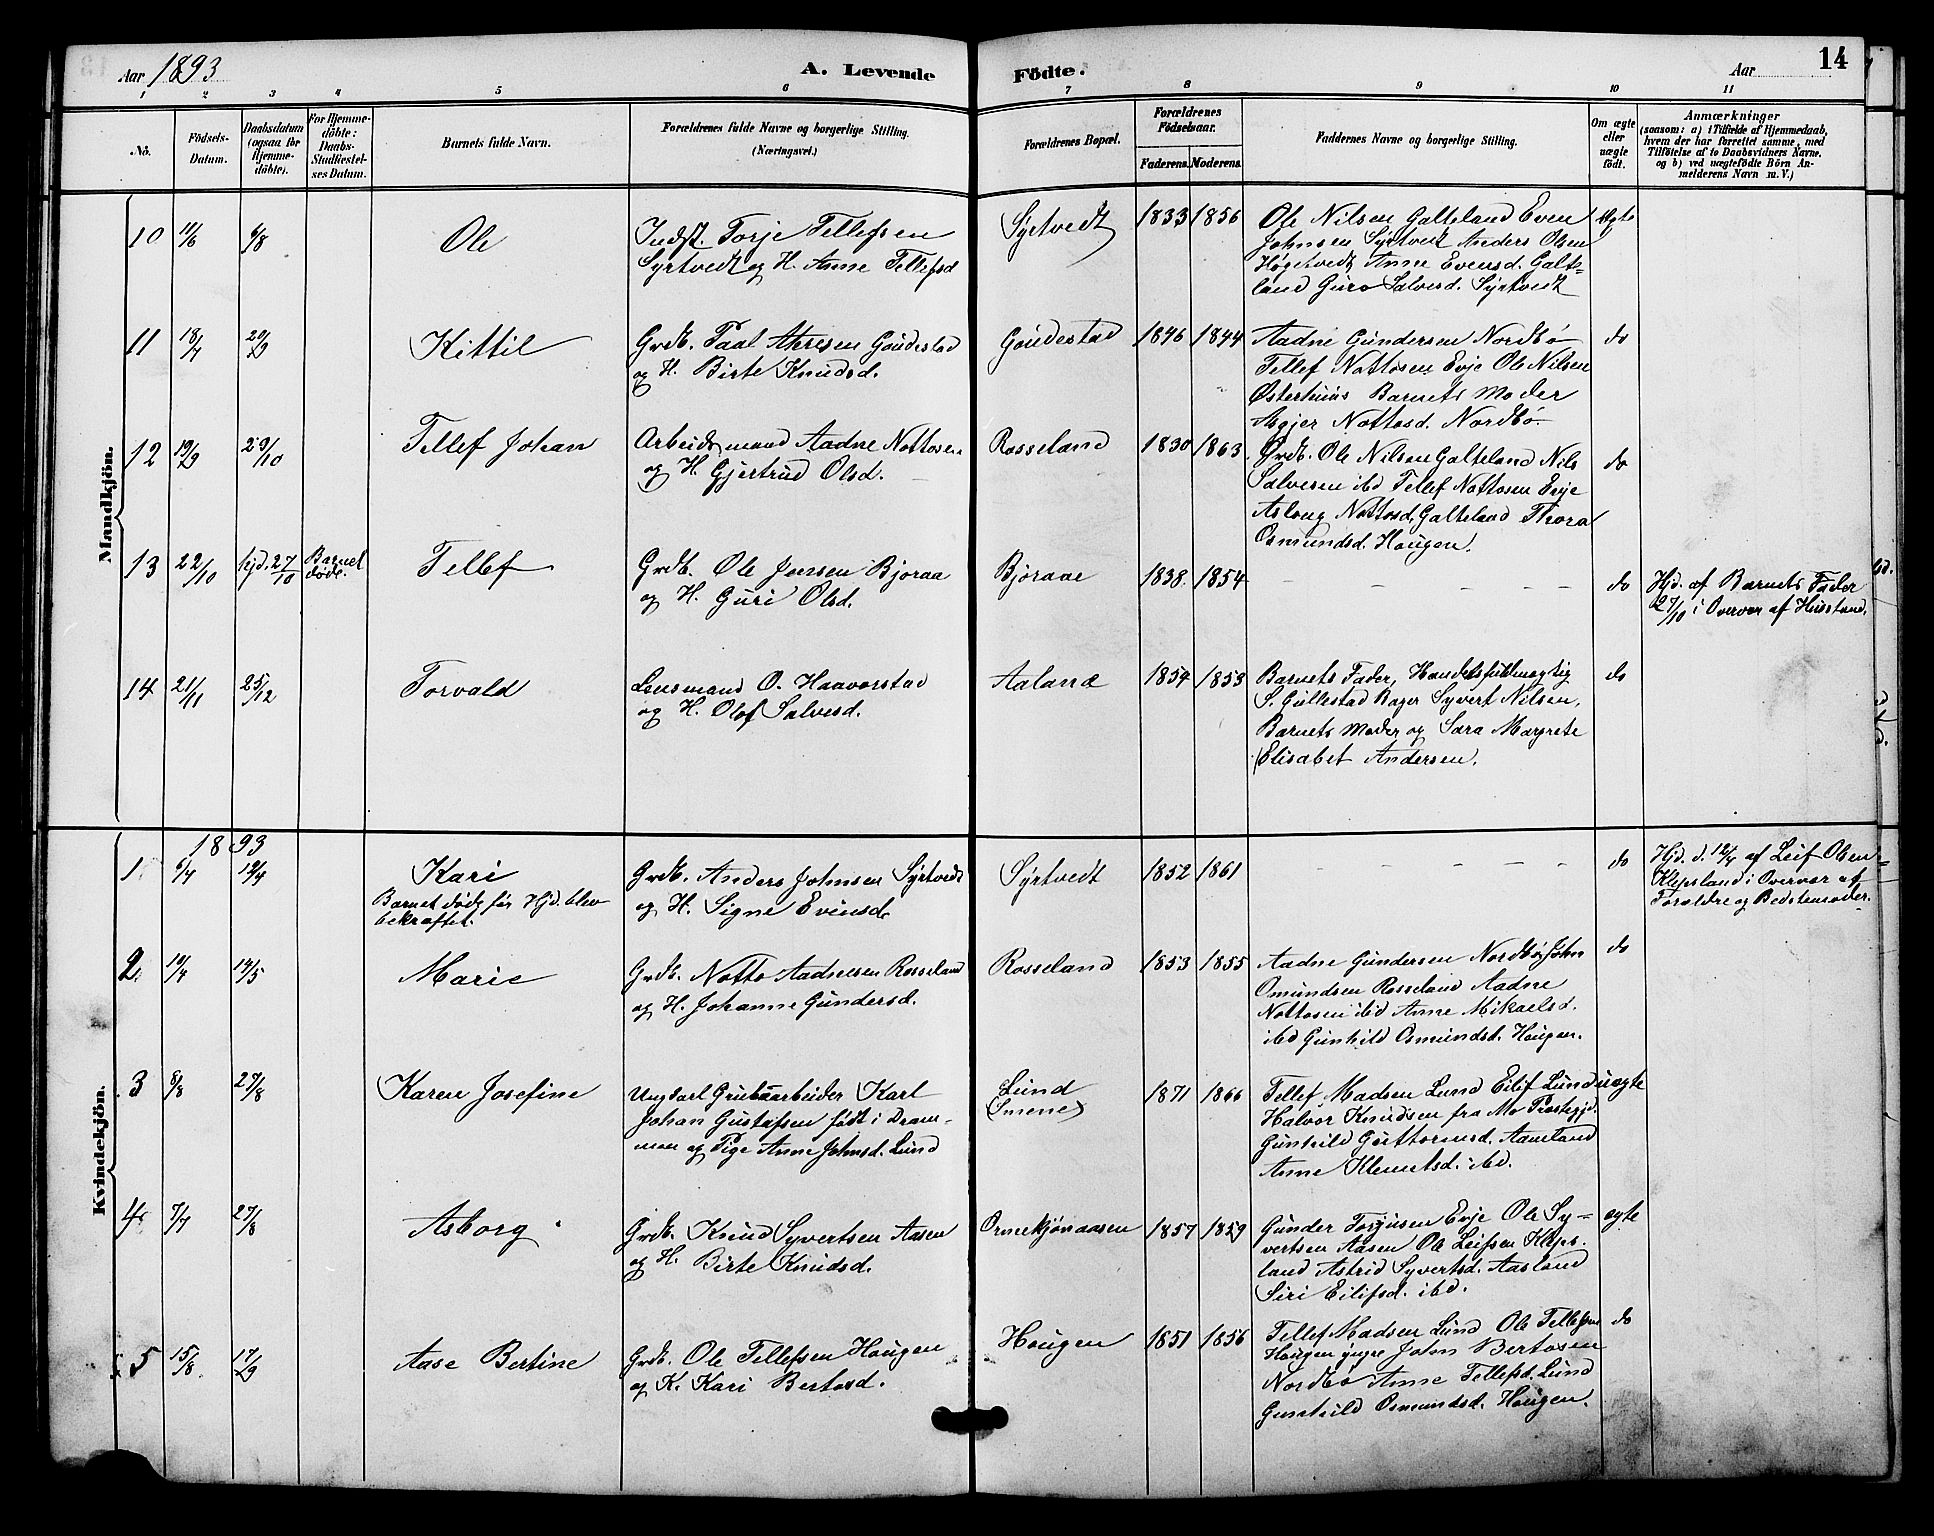 Aar 1893
A. Levende Fødte.
Aar
14
1 2 3 4 5 6 7 8 9 10 11
No.
Födsels-Datum.
Daabsdatum (ogsaa for Hjemme-döbte).
For Hjemme-döbte: Daabs-Stadfæstel-ses Datum.
Barnets fulde Navn.
Forældrenes fulde Navne og borgerlige Stilling. (Næringsvei.)
Forældrenes Bopæl.
Forældrenes Födselsaar.
Faderens. Moderens.
Faddernes Navne og borgerlige Stilling.
Om ægte eller uægte födt.
Anmærkninger
(saasom: a) i Tilfælde af Hjemmedaab, hvem der har forrettet samme, med Tilföielse af to Daabsvidners Navne, og b) ved uægtefödte Börn An-melderens Navn m. V.)
Mandkjön.
10 11/6 6/8 Ole
Indst. Torje Tellefsen
Syrtvedt og H. Anne Tellefsd
Syrtvedt 1833 1856
Ole Nilsen Galteland Even
Johnsen Syrtvedt Anders Olsen
Høgetvedt Anne Evensd. Galte=
land Guro Salvesd. Syrtvedt
ægte
11 18/7 20/9 Kittil
Grdb. Paal Gaudestad
og H. Birte Knudsd.
Gaudestad 1846 1844
Aadne Gundersen Nordbö
Tellef Nottosen Evje Ole Nilsen
Østerhuus Barnets Moder
Asgjer Nottosd. Nordbö.
do
12 19/9 29/10 Tellef Johan
Arbeidsmand Aadne Nottosen
og H. Gjertrud Olsd.
Rosseland 1830 1863
Grdb. Ole Nilsen Galteland Nils
Salvesen ibd Tellef Nottosen Evje
Aslaug Nottosd. Galteland Thora
Osmundsd. Haugen.
do
13 22/10 hjd. 27/10 Barnet døde. Tellef
Grdb. Ole Jensen Bjoraa
og H. Guri Olsd.
Bjoraae 1838 1854
— — — —
do
Hjd. af Barnets Fader
27/10 i Overvær af Husstand.
14 21/11 25/12 Torvald
Lensmand O. Haaverstad
og H. Olof Salvesd.
Aaland 1854 1853
Barnets Fader, Handelsfuldmægtig
S. Gullestad Bager Syvert Nilsen,
Barnets Moder og Sara Margrete
Elisabet Andersen.
do
Kvindekjön.
1893
1. 6/4 12/4 Kari
Barnet døde før Hjd. blev
bekræftet.
Grdb. Anders Johnsen Syrtvedt
og H. Signe Evensd.
Syrtvedt 1852 1861
— — — —
do
Hjd. d. 12/4 af Leif Olsen
Klepsland i Overvær af
Forældre og Bedstemoder.
2. 19/4 14/5 Marie
Grdb. Notto Aadnesen Rosseland
og H. Johanne Gundersd.
Rosseland 1853 1855
Aadne Gundersen Nordbö John
Osmundsen Rosseland Aadne
Nottosen ibd Anne Mikaelsd.
ibd Gunhild Osmundsd. Haugen.
do
3 8/8 27/8 Karen Josefine
Ungkarl Grubearbeider Karl
Johan Gustafsen født i Dram-
men og Pige Anne Johnsd. Lund
Lund
(Smene)
1871 1866
Tellef Madsen Lund Eilif Lund
Halvor Knudsen fra Mo Præstegjd.
Gunhild Guttormsd. Aamland
Anne Klemetsd. ibd.
uægte
4 7/7 27/8 Asborg
Grdb. Knud Syvertsen Aasen
og H. Birte Knudsd.
Ormekjønaasen 1857 1859
Gunder Torjusen Evje Ole Sy=
vertsen Aasen Ole Leifsen Kleps.
land Astrid Syvertsd. Aasland
Siri Eilifsd. ibd.
ægte
5 15/8. 17/9 Aase Bertine
Grdb. Ole Tellefsen Haugen
og K. Kari Bertosd.
Haugen 1851 1856
Tellef Madsen Lund Ole Tellefsen
Haugen yngre John Bertosen
Nordbö Anne Tellefsd. Lund
Gunhild Osmundsd. Haugen.
do